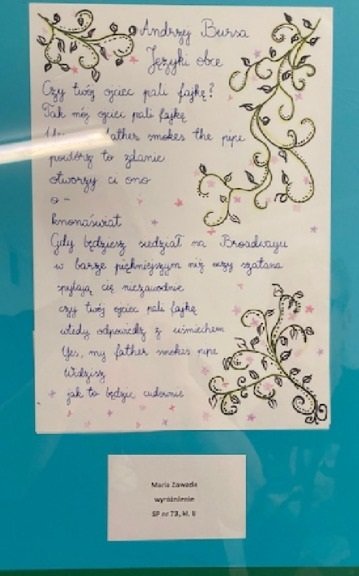 Andrzej Bursa
Języki obce
Czy twój ojciec pali fajkę?
Tak mój ojciec pali fajkę
Yes my father smokes the pipe
powtórz to zdanie
otworzy ci ono
o -
knonaświat
Gdy będziesz siedział na Broadwayu
w barze piękniejszym niż oczy szatana
spytają cię niezawodnie
czy twój ojciec pali fajkę
wtedy odpowiedz z uśmiechem
Yes, my father smokes pipe
Widzisz
jak to będzie cudownie
Maria Zawada
wyróżnienie
SP nr 73, kl. II